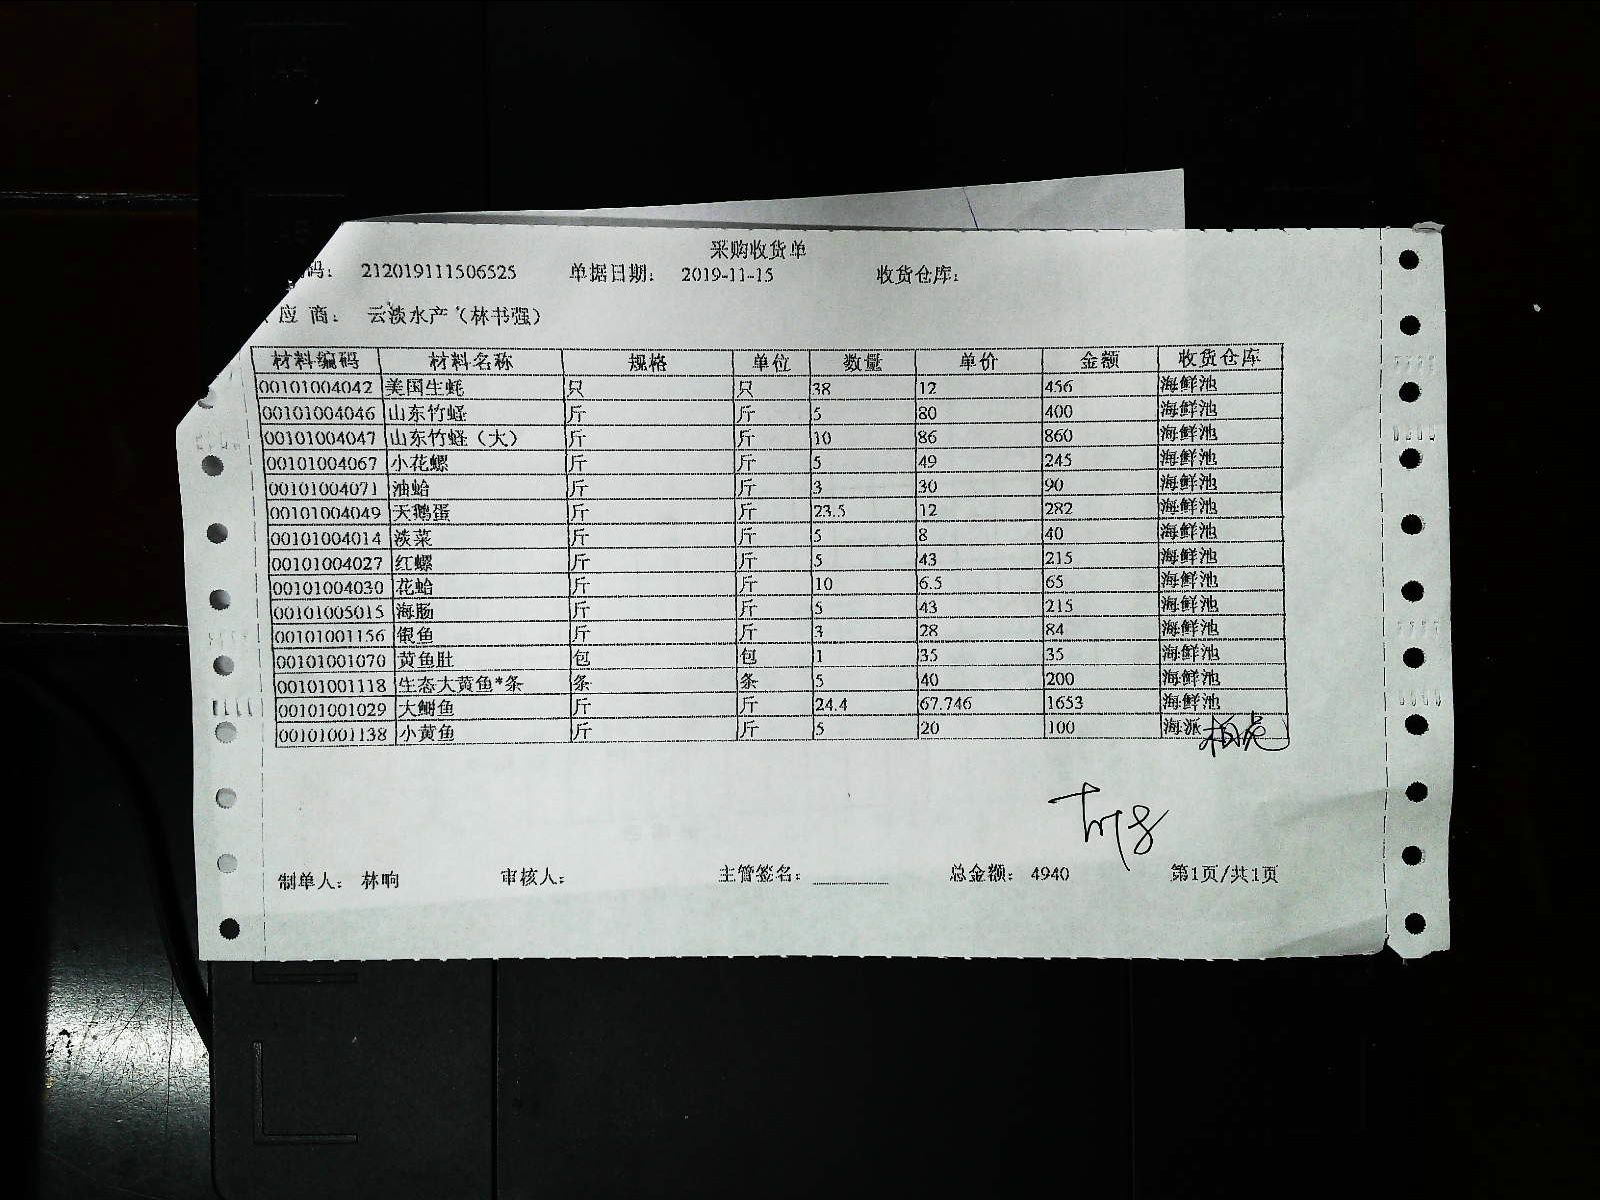 采购收货单
码： 212019111506525 单据日期： 2019-11-15 收货仓库：
应 商： 云淡水产（林书强）
材料编码 材料名称 规格 单位 数量 单价 金额 收货仓库
00101004042 美国生蚝 只 只 38 12 456 海鲜池
00101004046 山东竹蛏 斤 斤 5 80 400 海鲜池
00101004047 山东竹蛏（大） 斤 斤 10 86 860 海鲜池
00101004067 小花螺 斤 斤 5 49 245 海鲜池
00101004071 油蛤 斤 斤 3 30 90 海鲜池
00101004049 天鹅蛋 斤 斤 23.5 12 282 海鲜池
00101004014 淡菜 斤 斤 5 8 40 海鲜池
00101004027 红螺 斤 斤 5 43 215 海鲜池
00101004030 花蛤 斤 斤 10 6.5 65 海鲜池
00101005015 海肠 斤 斤 5 43 215 海鲜池
00101001156 银鱼 斤 斤 3 28 84 海鲜池
00101001070 黄鱼肚 包 包 1 35 35 海鲜池
00101001118 生态大黄鱼*条 条 条 5 40 200 海鲜池
00101001029 大鲥鱼 斤 斤 24.4 67.746 1653 海鲜池
00101001138 小黄鱼 斤 斤 5 20 100 海派
制单人： 林响 审核人： 主管签名： 总金额： 4940 第1页/共1页